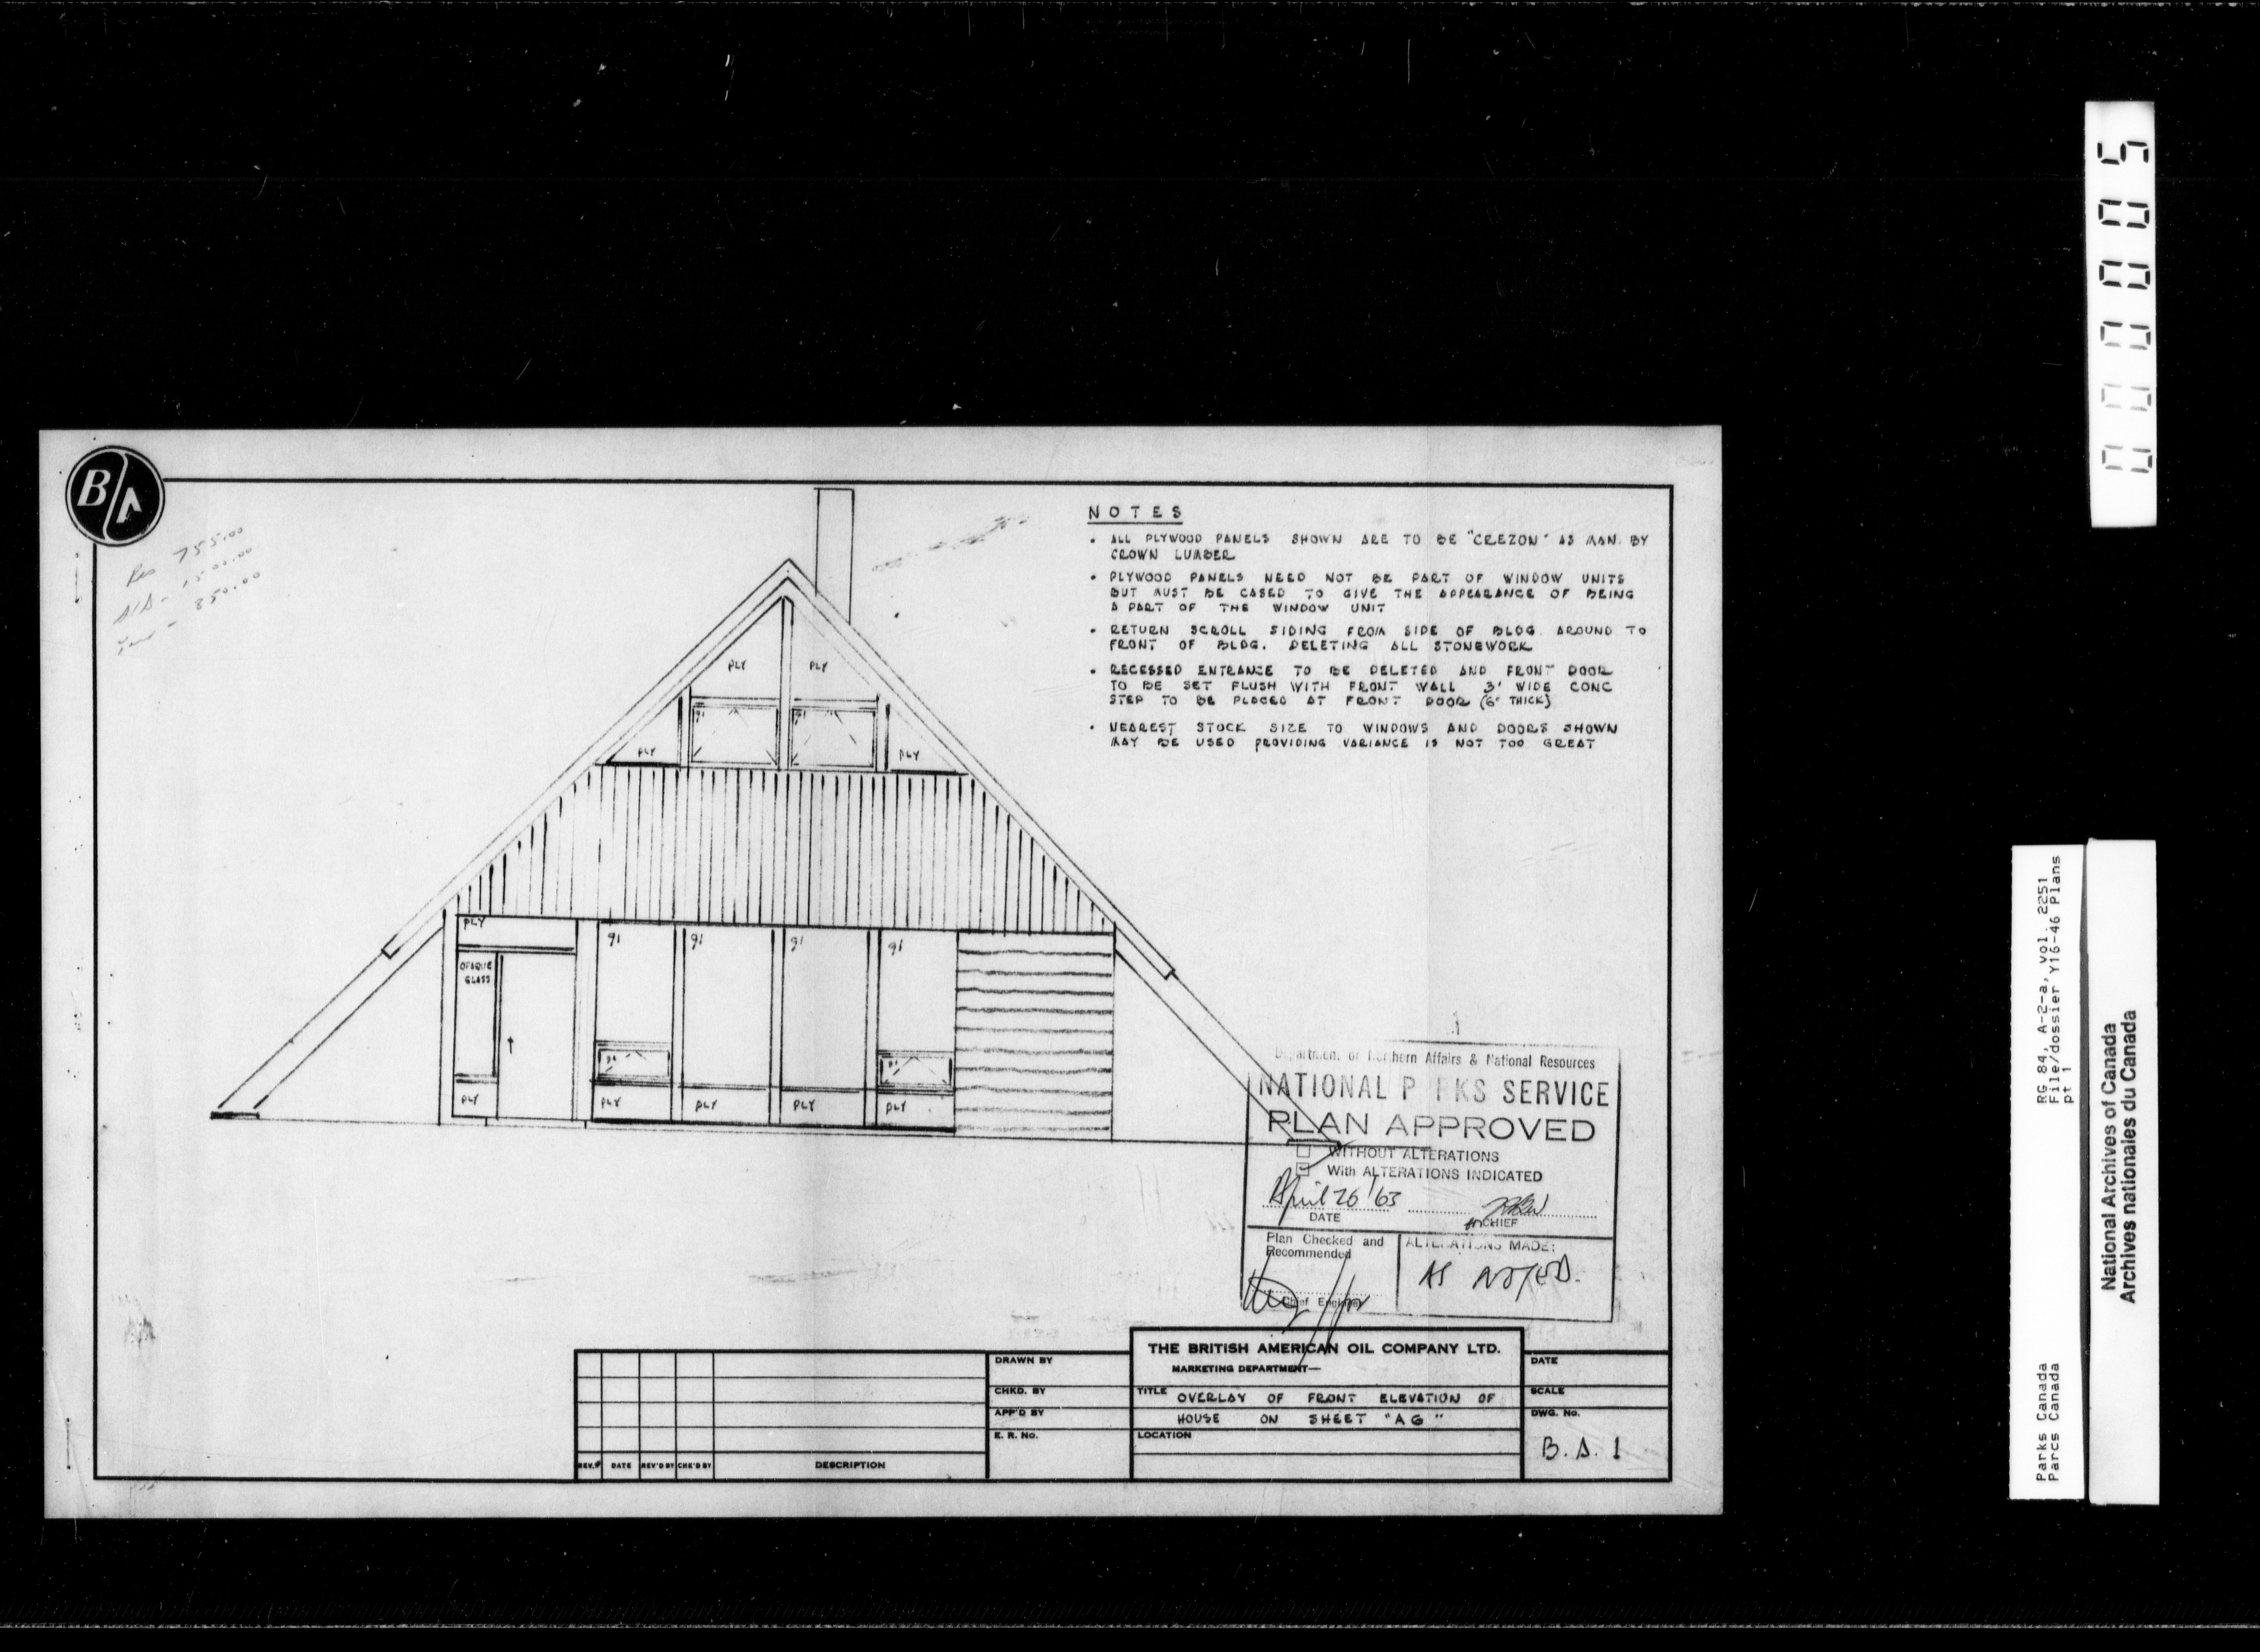 B/A
755.00
850.00
NOTES
• ALL PLYWOOD PANELS SHOWN ARE TO BE "CREZON" AS MAN. BY
CROWN LUMBER
• PLYWOOD PANELS NEED NOT BE PART OF WINDOW UNITS
BUT MUST BE CASED TO GIVE THE APPEARANCE OF BEING
A PART OF THE WINDOW UNIT
• RETURN SCROLL SIDING FROM SIDE OF BLDG. AROUND TO
FRONT OF BLDG. DELETING ALL STONEWORK
• RECESSED ENTRANCE TO BE DELETED AND FRONT DOOR
TO BE SET FLUSH WITH FRONT WALL 3' WIDE CONC
STEP TO BE PLACED AT FRONT DOOR (6" THICK)
• NEAREST STOCK SIZE TO WINDOWS AND DOORS SHOWN
MAY BE USED PROVIDING VARIANCE IS NOT TOO GREAT
PLY PLY
gl gl
PLY PLY
PLY
gl gl gl gl
OPAQUE
GLASS
PLY PLY PLY PLY PLY
Department of Northern Affairs & National Resources
NATIONAL PARKS SERVICE
PLAN APPROVED
WITHOUT ALTERATIONS
With ALTERATIONS INDICATED
April 26/63
DATE
CHIEF
Plan Checked and
Recommended
Chief Engineer
ALTERATIONS MADE:
AS NOTED.
REV.# DATE REV'D BY CHK'D BY DESCRIPTION
DRAWN BY
CHKD. BY
APP'D BY
E. R. No.
THE BRITISH AMERICAN OIL COMPANY LTD.
MARKETING DEPARTMENT—
TITLE OVERLAY OF FRONT ELEVATION OF
HOUSE ON SHEET "AG"
LOCATION
DATE
SCALE
DWG. No.
B. A. 1
00005
RG 84, A-2-a, vol. 2251
File/dossier Y16-46 Plans
pt 1
Parks Canada
Parcs Canada
National Archives of Canada
Archives nationales du Canada